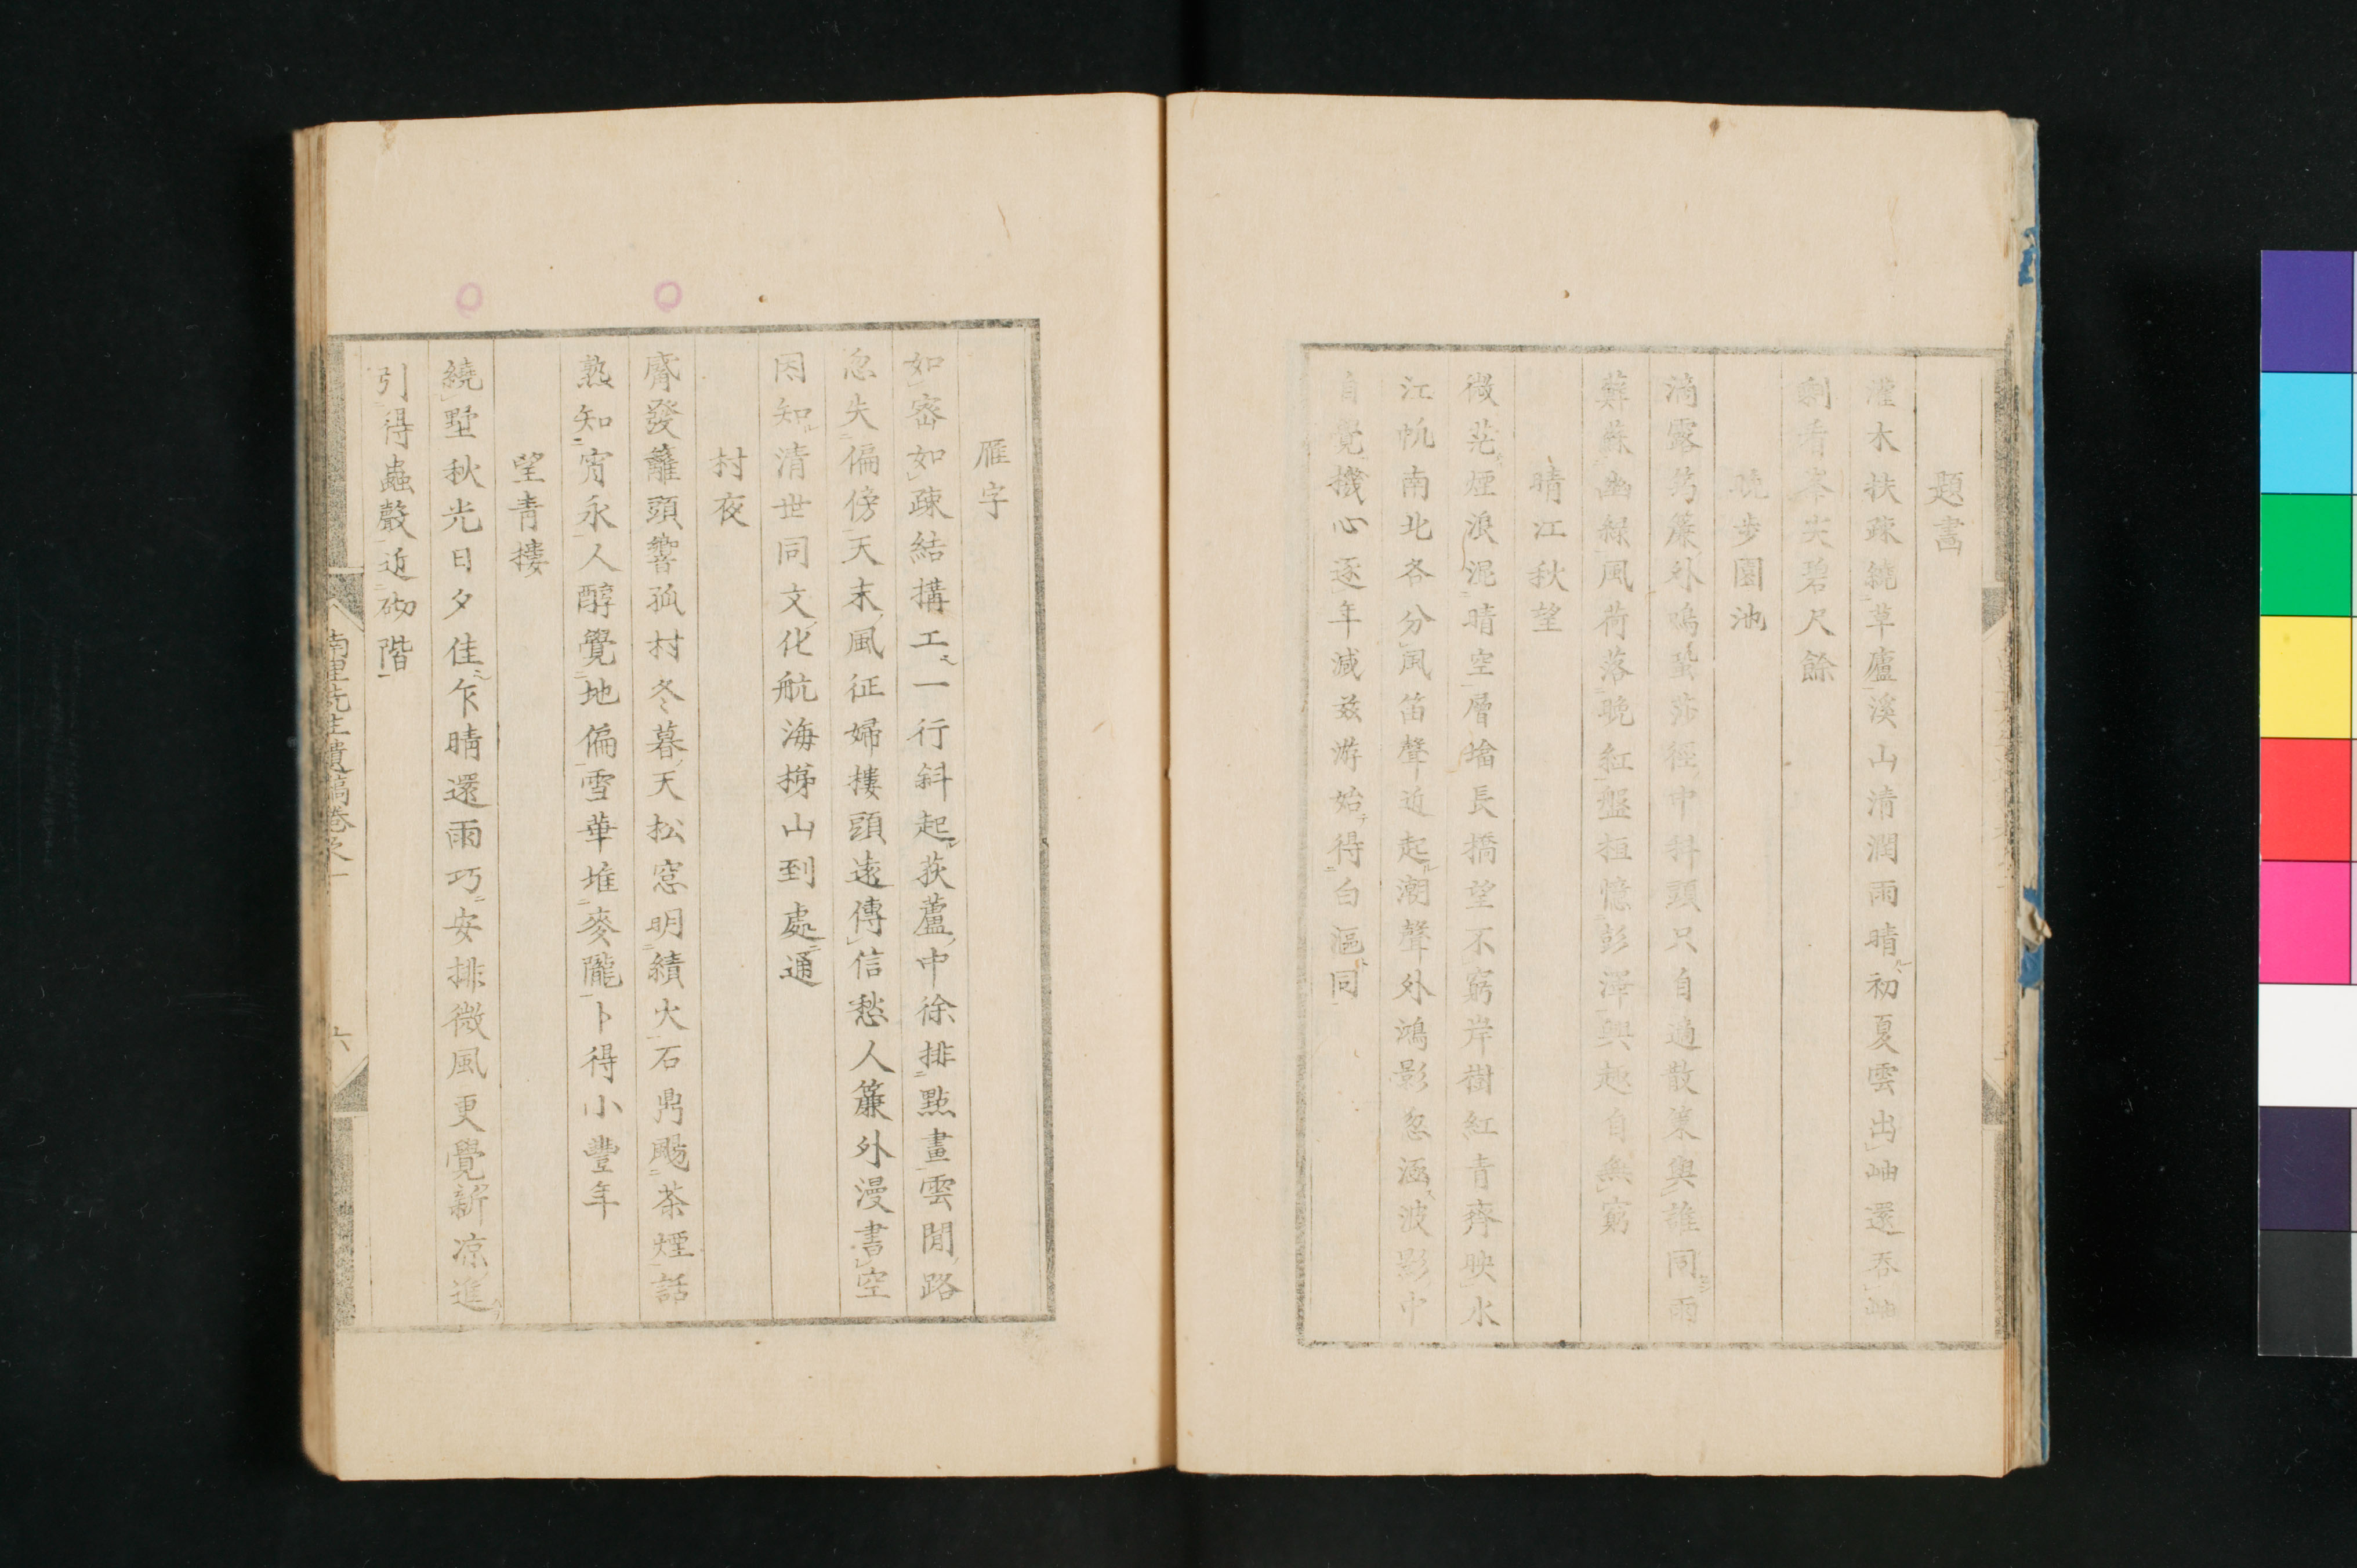 題畫
灌木扶疎繞草廬溪山清潤雨晴初夏雲出岫還吞岫
剩看峯尖碧尺餘
晚步園池
滴露筠簾外鳴蛩莎徑中科頭只自適散策與誰同雨
蘚蘇幽緑風荷落晚紅盤桓憶彭澤興趣自無窮
晴江秋望
微茫煙浪混晴空層墖長橋望不窮岸樹紅青齊映水
江帆南北各分風笛聲近起潮聲外鴻影忽涵波影中
自覺機心逐年減茲游始得白漚同
雁字
如密如疎結搆工一行斜起荻蘆中徐排點畫雲閒路
忽失偏傍天末風征婦樓頭遠傳信愁人簾外漫書空
因知清世同文化航海梯山到處通
村夜
觱發籬頭響孤村冬暮天松窓明績火石鼎颺茶煙話
熟知宵永人醇覺地偏雪華堆麥隴卜得小豐年
望青樓
繞墅秋光日夕佳乍晴還雨巧安排微風更覺新涼進
引得蟲聲近砌階
南里先生遺稿卷之一
六